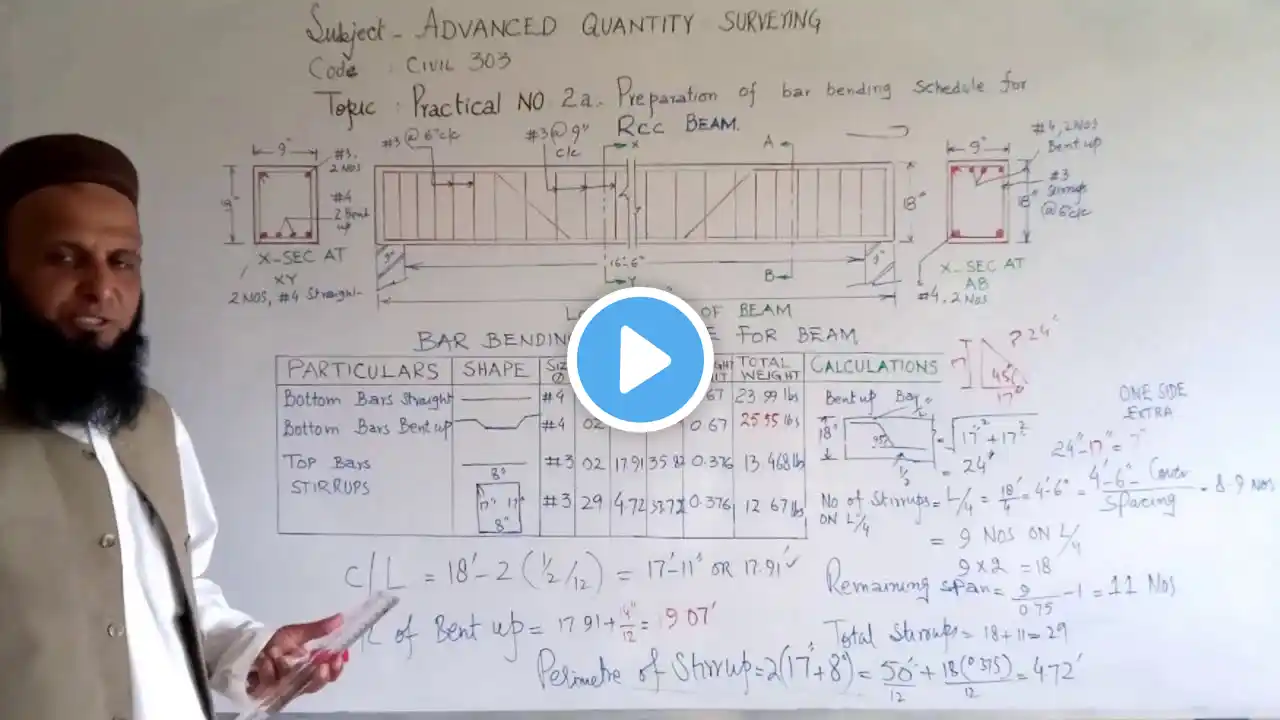 Subject - ADVANCED QUANTITY SURVEYING
Code : CIVIL 303
Topic : Practical NO 2a. Preparation of bar bending schedule for
RCC BEAM.
#3@6"c/c
#3@9"
c/c
X
A
9"
#3,
2 NOS
#4
2 Bent
up
18"
X-SEC AT
XY
2 NOS, #4 Straight
9"
16'-6"
9"
Y
B
18"
9"
#4, 2 NOS
Bent up
#3
Stirrups
@6"c/c
18"
X-SEC AT
AB
#4, 2 NOS
OF BEAM
BAR BENDING FOR BEAM
PARTICULARS SHAPE TOTAL WEIGHT CALCULATIONS
Bottom Bars Straight #4 67 23.99 lbs
Bottom Bars Bent up #4 02 0.67 25.55 lbs
Top Bars #3 02 17.91 35.82 0.376 13.468 lb
STIRRUPS 8" 17" 17" 8" #3 29 4.72 0.376 12.67 lbs
Bent up Bar
18"
45°
1/2
= √17² + 17²
= 24"
24"
45°
17"
ONE SIDE
EXTRA
24"-17" = 7"
No of Stirrups = L/4 = 18'/4 = 4'-6" = 4'-6" - Cover / Spacing = 8.9 NOS
ON L/4
= 9 NOS ON L/4
9 x 2 = 18
Remaining span = 9/0.75 - 1 = 11 Nos
Total Stirrups = 18 + 11 = 29
C/L = 18' - 2 (1/2/12) = 17'-11" OR 17.91'
of Bent up = 17.91 + 14"/12 = 19.07'
Perimetre of Stirrup = 2(17" + 8") = 50"/12 + 18(0.375)/12 = 4.72'